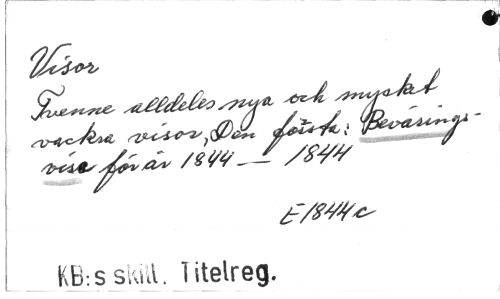 Visor
Tvenne alldeles nya och mycket
vackra visor, Den första: Bevärings-
visa för år 1844 — 1844
E 1844 c
KB:s skill. Titelreg.